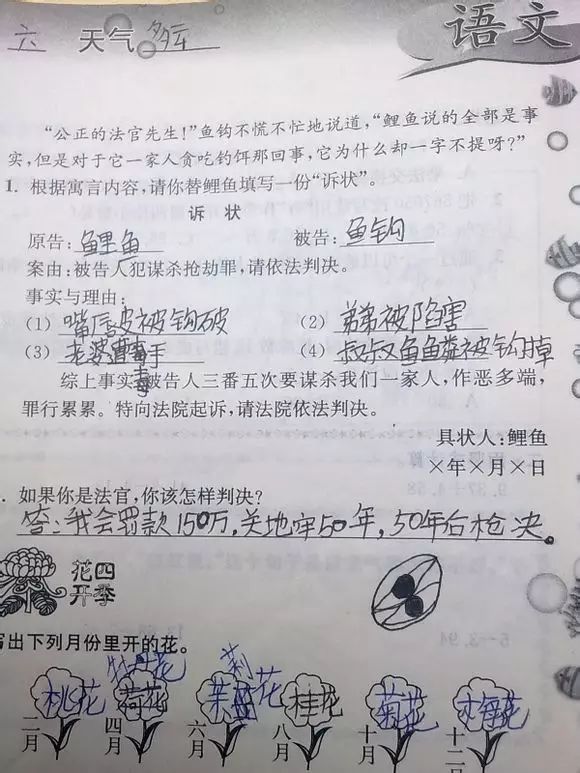 六 天气 多云
语文
“公正的法官先生!”鱼钩不慌不忙地说道,“鲤鱼说的全部是事
实,但是对于它一家人贪吃钓饵那回事,它为什么却一字不提呀?”
1. 根据寓言内容,请你替鲤鱼填写一份“诉状”。
诉 状
原告: 鲤鱼 被告: 鱼钩
案由:被告人犯谋杀抢劫罪,请依法判决。
事实与理由:
(1) 嘴唇皮被钩破 (2) 弟弟被陷害
(3) 老婆遭毒手 (4) 叔叔鱼鱼鳞被钩掉
综上事实,被告人三番五次要谋杀我们一家人,作恶多端,
罪行累累。特向法院起诉,请法院依法判决。
具状人:鲤鱼
×年×月×日
. 如果你是法官,你该怎样判决?
答:我会罚款150万,关地牢50年,50年后枪决。
花四
开季
写出下列月份里开的花。
桃花 牡丹花 荷花 茉莉花 桂花 菊花 梅花
二月 四月 六月 八月 十月 十二月